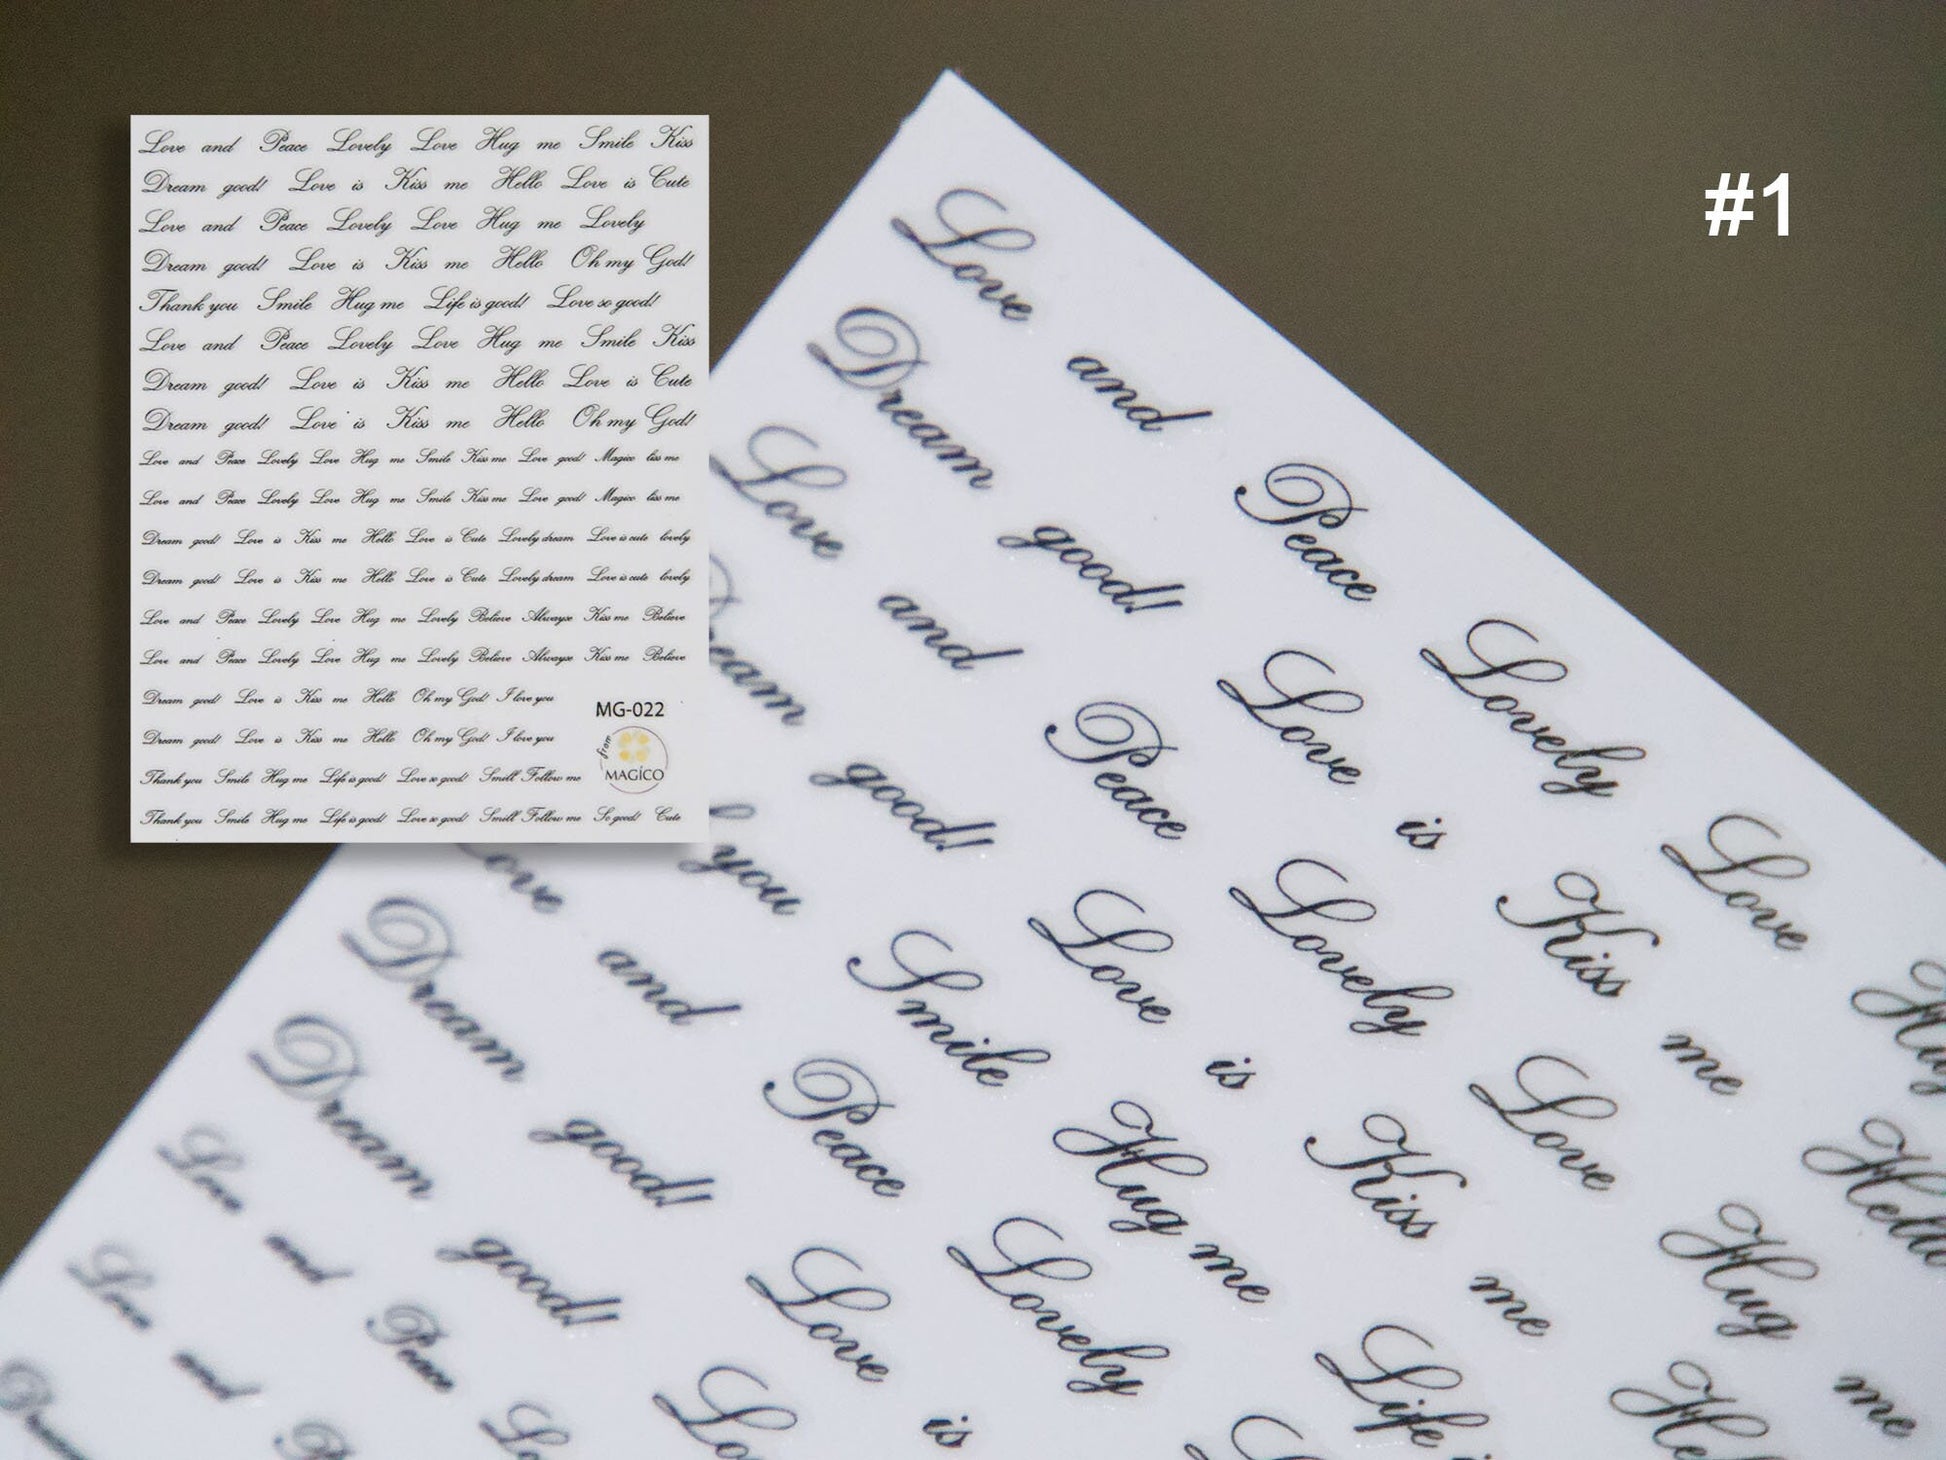 Love and Peace Lovely Love Hug me Smile Kiss
Dream good! Love is Kiss me Hello Love is Cute
Love and Peace Lovely Love Hug me Lovely
Dream good! Love is Kiss me Hello Oh my God!
Thank you Smile Hug me Life is good! Love so good!
Love and Peace Lovely Love Hug me Smile Kiss
Dream good! Love is Kiss me Hello Love is Cute
Dream good! Love is Kiss me Hello Oh my God!
Love and Peace Lovely Love Hug me Smile Kiss me Love good! Magico liss me
Love and Peace Lovely Love Hug me Smile Kiss me Love good! Magico liss me
Dream good! Love is Kiss me Hello Love is Cute Lovely dream Love is cute lovely
Dream good! Love is Kiss me Hello Love is Cute Lovely dream Love is cute lovely
Love and Peace Lovely Love Hug me Lovely Believe Alwayse Kiss me Believe
Love and Peace Lovely Love Hug me Lovely Believe Alwayse Kiss me Believe
Dream good! Love is Kiss me Hello Oh my God! I love you
MG-022
Dream good! Love is Kiss me Hello Oh my God! I love you
from
MAGÍCO
Thank you Smile Hug me Life is good! Love so good! Smill Follow me
Thank you Smile Hug me Life is good! Love so good! Smill Follow me So good! Cute
#1
Love and Peace Lovely Love Hug
Dream good! Love is Kiss me Hello
Love and Peace Lovely Love Hug me
Dream good! Love is Kiss me
you Smile Hug me Life
Love and Peace Lovely
Dream good! Love is
Dream good!
Love and Peace
Love and